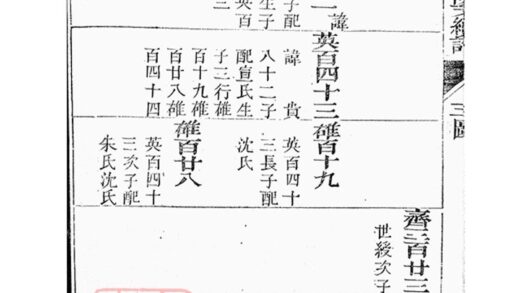 三圖
諱
子配
生子
英百
三
英百四十三
諱貴
八十二子
配宣氏生
子三行雄
百十九雄
百廿八雄
百四十四
雄百十九
英百四十
三長子配
沈氏
雄百廿八
英百四十
三次子配
朱氏沈氏
齊三百廿三
世綬次子